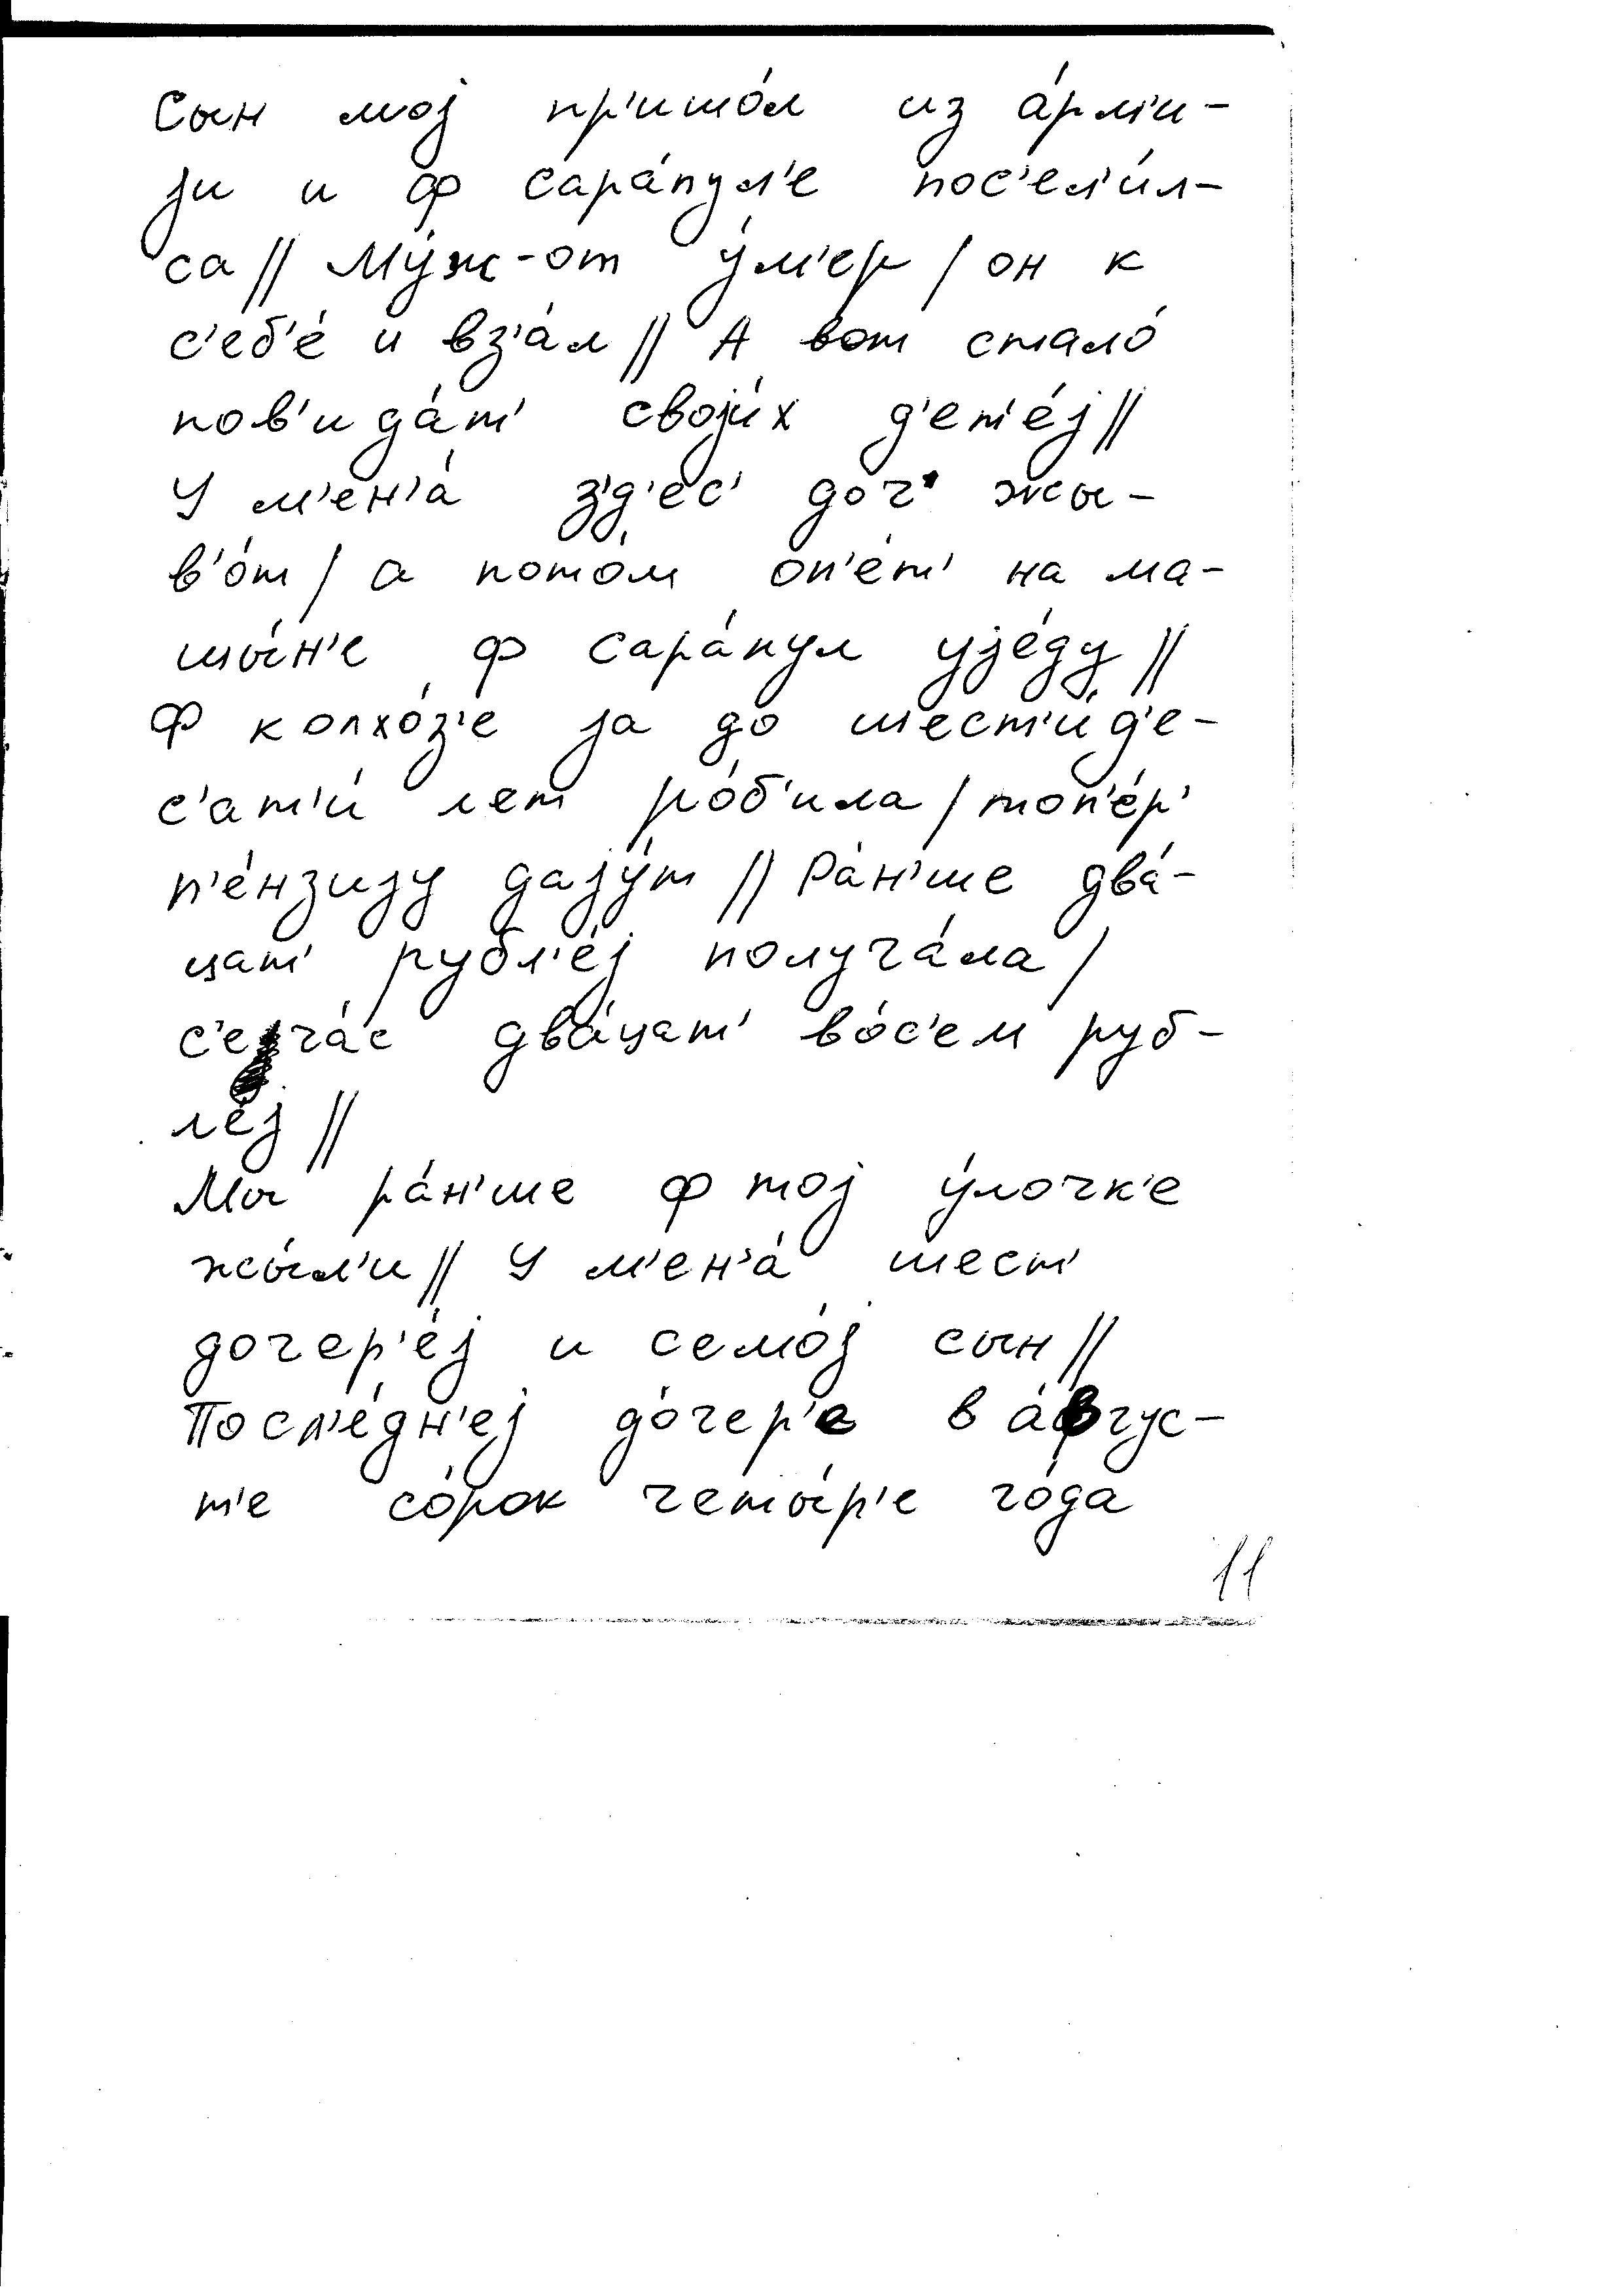 Сын мој пр'ишо́л из а́рм'и-
ји и ф сара́пул'е пос'ел'и́л-
са // Му́ж-от у́м'ер / он к
с'еб'е́ и вз'а́л // А вот стало́
пов'ида́т' своји́х д'ет'е́ј //
У м'ен'а́ з'д'ес' доч' жы-
в'о́т / а пото́м оп'е́т' на ма-
шы́н'е ф сара́пул ује́ду //
Ф колхо́з'е ја до шест'и́д'е-
с'ат'и́ лет ро́б'ила / топ'е́р'
п'е́нзију дају́т // Ра́н'ше два́-
цат' рубл'е́ј получа́ла /
с'еjча́с два́цат' во́с'ем руб-
ле́ј //
Мы ра́н'ше ф тој у́лочк'е
жы́л'и // У м'ен'а́ шест'
дочер'е́ј и семо́ј сын //
Посл'е́дн'еј до́чер'е в а́вгус-
т'е со́рок четы́р'е го́да
11